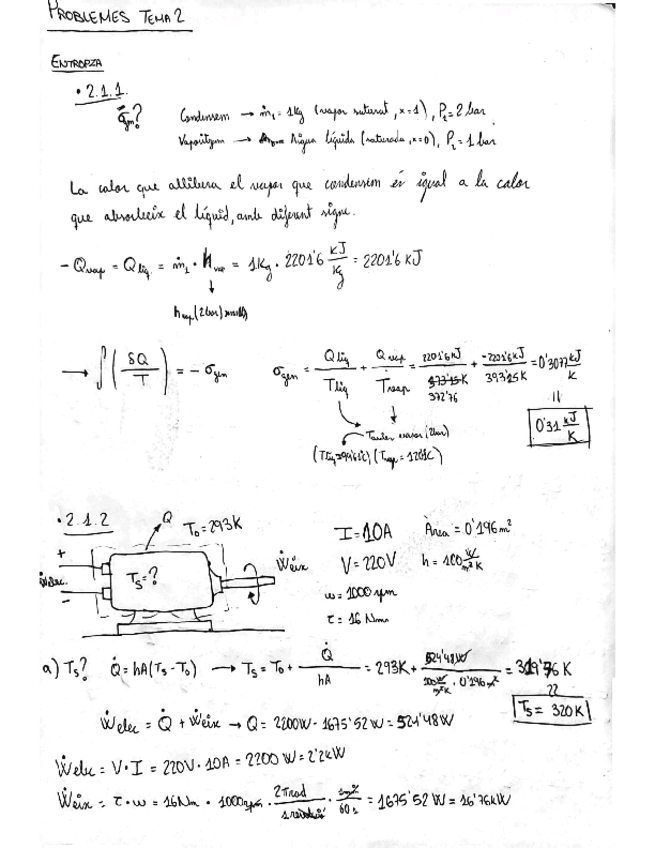 PROBLEMES TEMA 2
ENTROPIA
• 2.1.1.
σgen? Condensem → ṁ₁ = 1Kg (vapor saturat, x=1), P₁ = 2 bar
Vaporitzem → Aigua líquida (saturada, x=0), P₂ = 1 bar
La calor que allibera el vapor que condensem és igual a la calor
que absorbeix el líquid, amb diferent signe.
- Qvap = Qliq = ṁ₁ · hvap = 1Kg · 2201'6 kJ/kg = 2201'6 KJ
hvap (2bar)
→ ∫(δQ/T) = - σgen σgen = Qliq/Tliq + Qvap/Tvap = 2201'6 KJ/372'76 + -2201'6 KJ/393'15K = 0'3077 kJ/K
0'31 kJ/K
Taules (2bar)
• 2.1.2 Q T₀ = 293K
I = 10A Àrea = 0'196 m²
V = 220V h = 100 W/m²K
ω = 1000 rpm
τ = 16 Nm
+
Ẇelec.
-
Ts = ?
Ẇeix
a) Ts? Q̇ = hA(Ts - T₀) → Ts = T₀ + Q̇/hA = 293K + 524'48W/(100 W/m²K · 0'196 m²) = 319'76 K
Ts = 320K
Ẇelec = Q̇ + Ẇeix → Q = 2200W - 1675'52 W = 524'48W
Ẇelec = V · I = 220V · 10A = 2200 W = 2'2kW
Ẇeix = τ · ω = 16Nm · 1000rpm · 2πrad/1 revolució · 1min/60s = 1675'52 W = 16'76kW